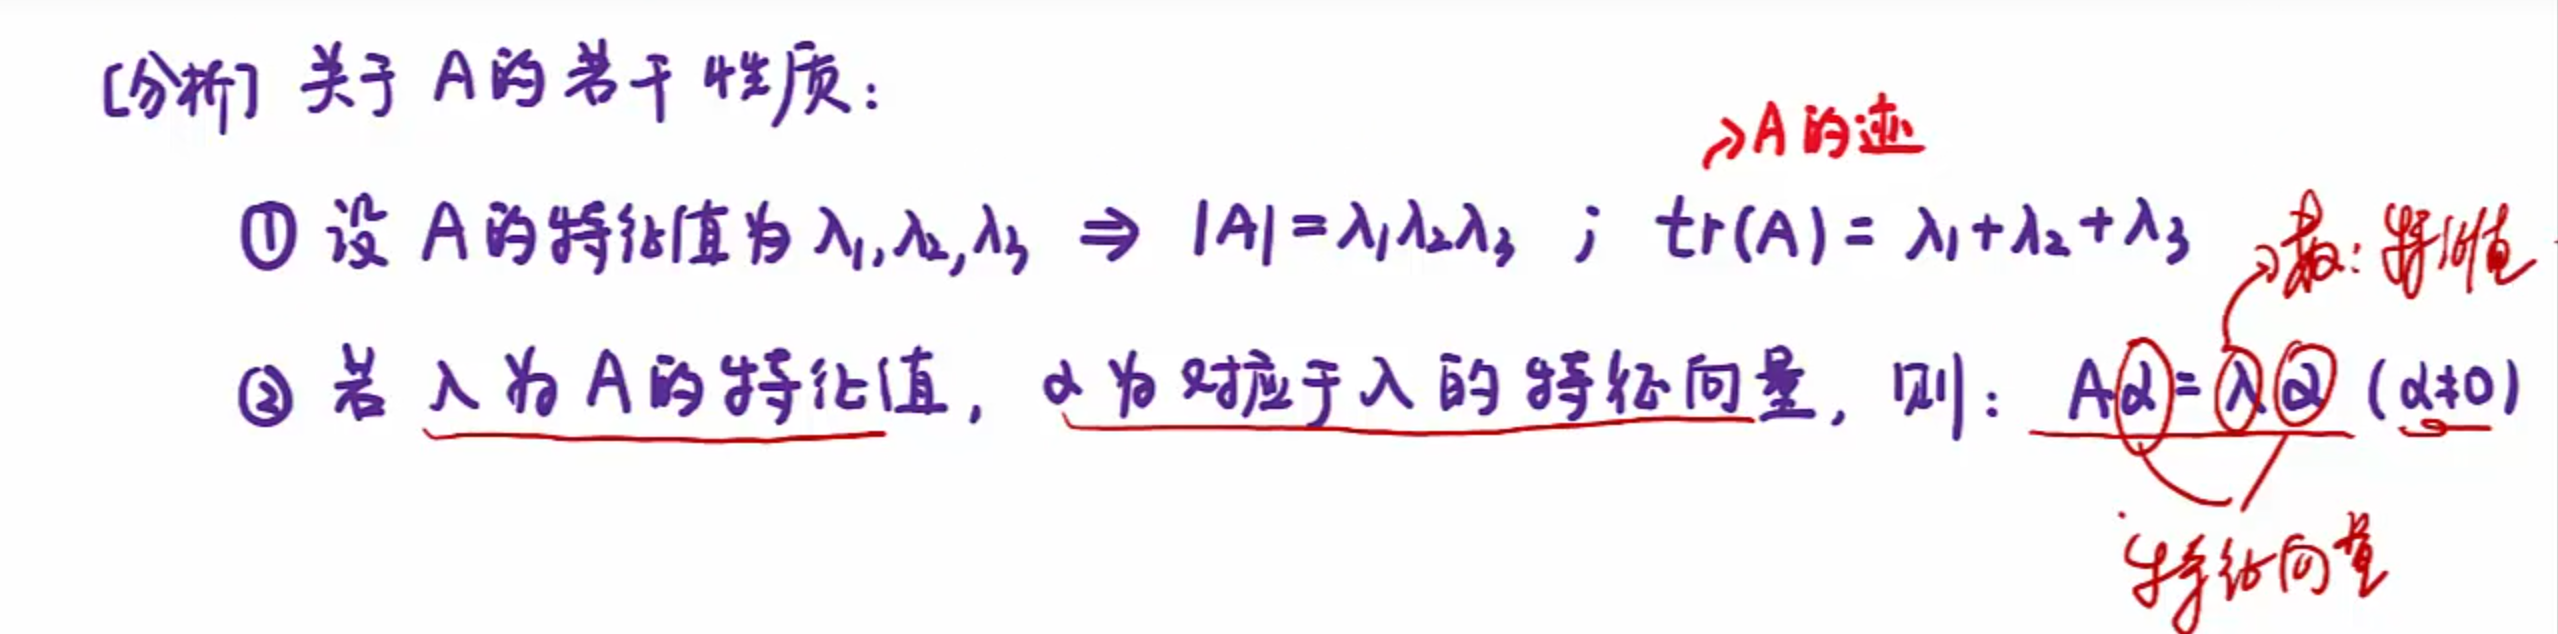 [分析] 关于 A 的若干性质：
→A的迹
① 设 A 的特征值为 λ₁, λ₂, λ₃ ⇒ |A| = λ₁λ₂λ₃ ； tr(A) = λ₁+λ₂+λ₃
→数：特征值
② 若 λ 为 A 的特征值， α 为对应于 λ 的特征向量，则： Aα = λα (α≠0)
特征向量